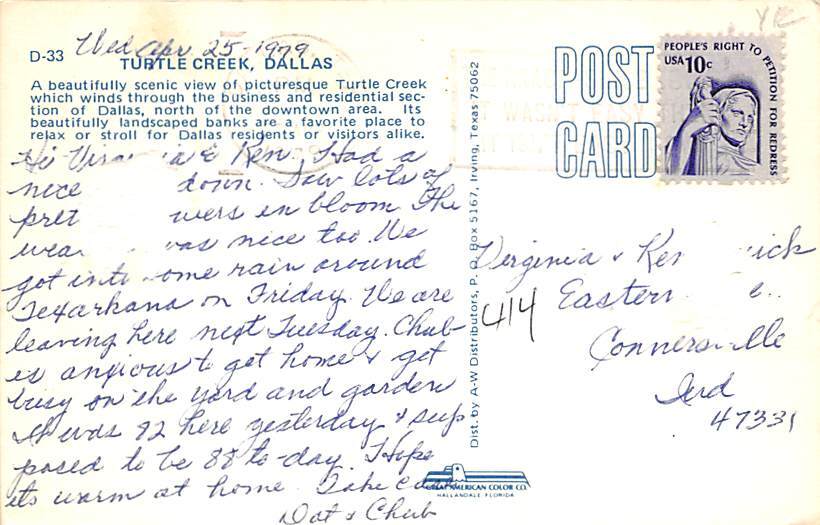 Wed Apr. 25-1979
D-33
TURTLE CREEK, DALLAS
A beautifully scenic view of picturesque Turtle Creek
which winds through the business and residential sec-
tion of Dallas, north of the downtown area. Its
beautifully landscaped banks are a favorite place to
relax or stroll for Dallas residents or visitors alike.
Hi Virginia & Ken. Had a
nice down. Saw lots of
in bloom. The
was nice too. We
got into some rain around
Texarkana on Friday. We are
leaving here next Tuesday. Chub
is anxious to get home & get
busy on the yard and garden
It was 82 here yesterday & sup
posed to be 88 to-day. Hope
its warm at home. Take care
Dot & Chub
Dist. by A-W Distributors, P. O. Box 5167, Irving, Texas 75062
GREAT AMERICAN COLOR CO.
HALLANDALE FLORIDA
POST
CARD
PEOPLE'S RIGHT TO PETITION FOR REDRESS
USA 10c
WASN'T EASY
Virginia & Ken
414 Eastern
Connersville
Ind
47331